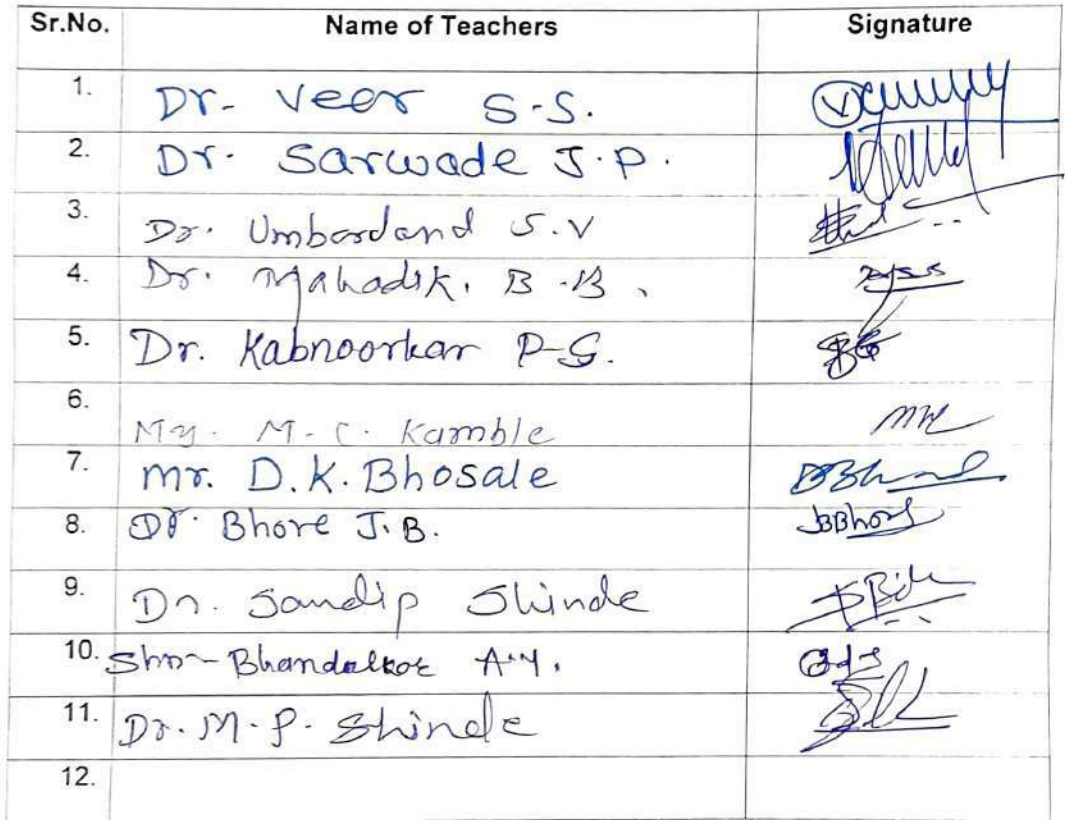 Sr.No. Name of Teachers Signature
1. Dr. Veer S.S.
2. Dr. Sarwade J.P.
3. Dr. Umbardand S.V
4. Dr. Mahadik. B.B.
5. Dr. Kabnoorkar P.G.
6. Mr. M.C. Kamble
7. Mr. D.K. Bhosale
8. Dr. Bhore J.B. JBBhore
9. Dr. Sandip Shinde
10. Bhandalkar A.Y.
11. Dr. M.P. Shinde
12.